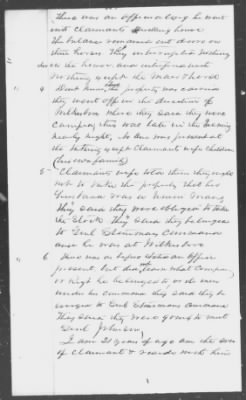 There was an officer along he went
into Claimants dwelling house
The balance remained out doors on
their horses They interrupted nothing
in the house and interfered with
nothing except the Mare & hood
4 Dont know where the property was carried
they went off in the direction of
Wilkesboro where they said they were
camped, they was late in the evening
nearly night, No one was present at
the taking except Claimants wife & children
(his own family)
5 Claimants wife told them they ought
not to take the property that her
husband was a Union Man
They said they were obliged to take
the Stock They said they belonged
to Genl Stoneman Command
and he was at Wilkesboro
6 There was as before stated an officer
present but did not learn what Company
or Regt he belonged to or the men
under his command they said they be
longed to Genl Stonemans command
They said they were going to meet
Genl Johnson,
I am 21 years of age am the son
of Claimant & reside with him